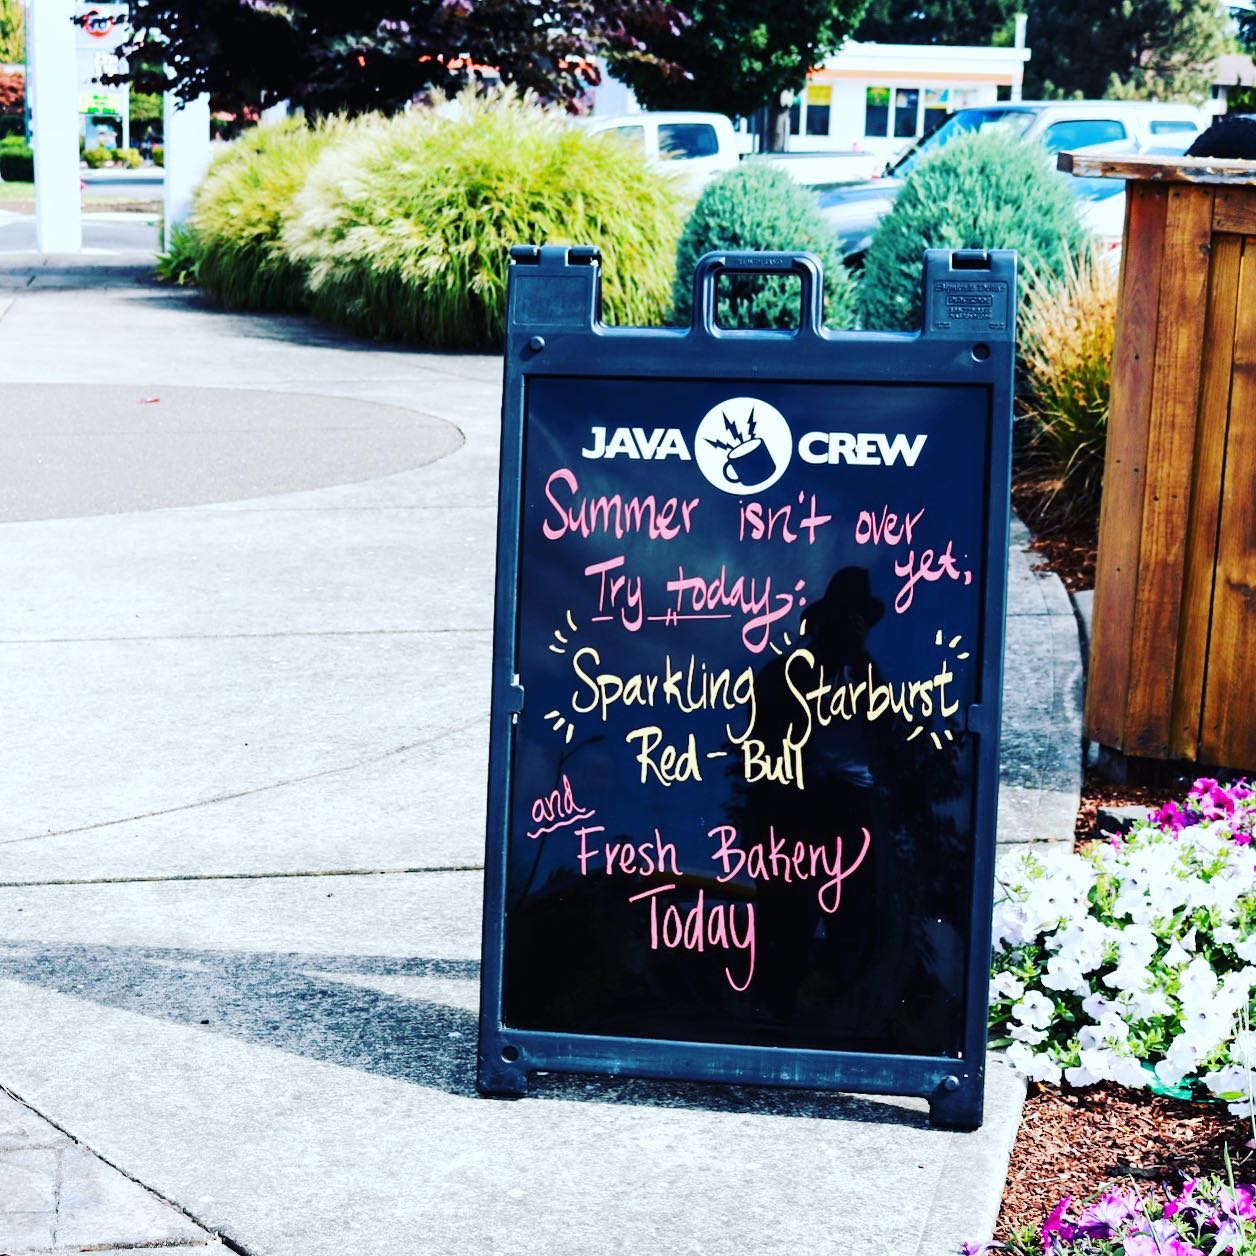 JAVA CREW
Summer isn't over
yet;
Try today:
Sparkling Starburst
Red-Bull
and
Fresh Bakery
Today